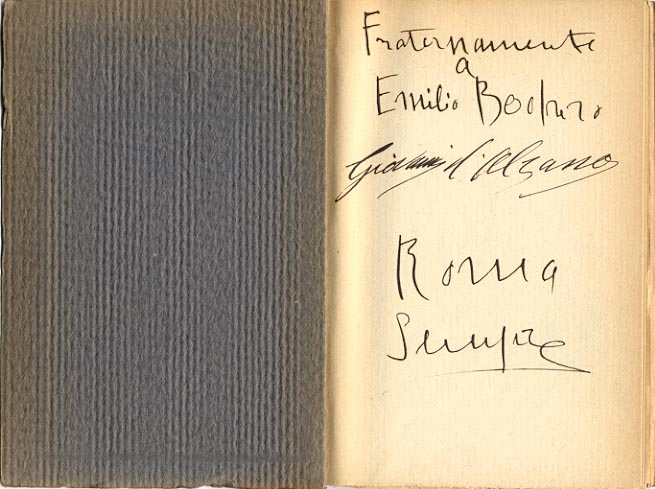 Fraternamente
a
Emilio Bodrero
Giovanni
Roma
Sempre